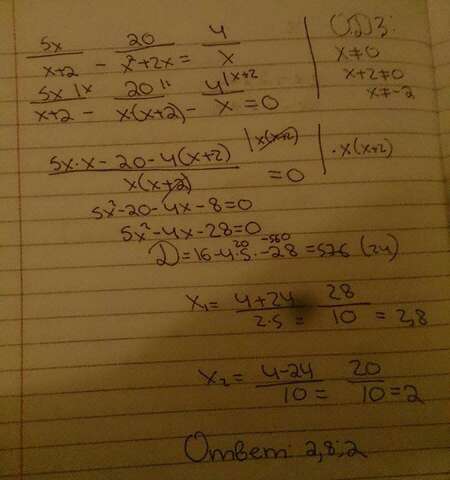 5x/(x+2) - 20/(x²+2x) = 4/x
О.Д.З:
x≠0
x+2≠0
x≠-2
5x |x/(x+2) - 20 |1/(x(x+2)) - 4 |x+2/x = 0
(5x·x-20-4(x+2))/(x(x+2)) |x(x+2) = 0 | ·x(x+2)
5x²-20-4x-8=0
5x²-4x-28=0
D=16-4·5·-28=576 (24)
20 -560
x₁= (4+24)/(2·5) = 28/10 = 2,8
x₂= (4-24)/10 = 20/10 = 2
Ответ: 2,8; 2